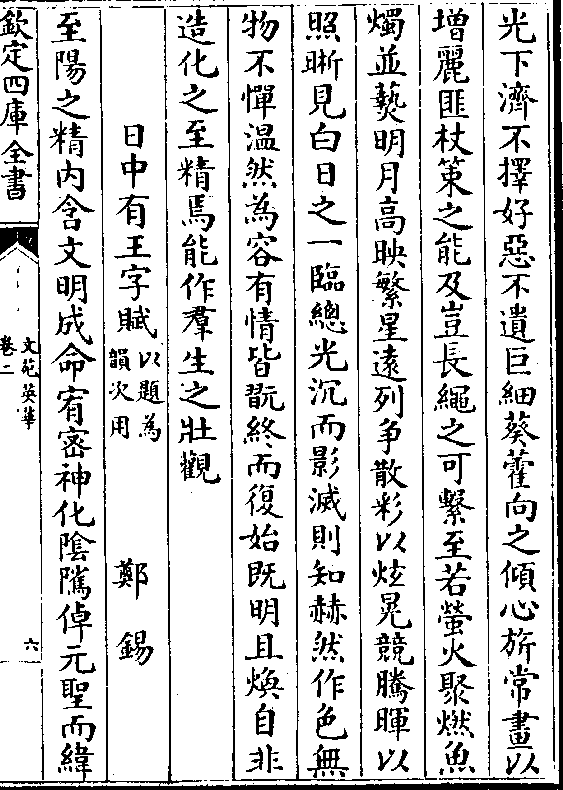 光下濟不擇好惡不遺巨細葵藿向之傾心旂常畫以
增麗匪杖策之能及豈長繩之可繫至若螢火聚燃魚
燭並爇明月高映繁星遠列争散彩以炫晃競騰暉以
照晣見白日之一臨總光沉而影滅則知赫然作色無
物不憚温然為容有情皆翫終而復始既明且煥自非
造化之至精焉能作羣生之壯觀
日中有王字賦以題為韻次用 鄭錫
至陽之精内含文明成命宥密神化陰隲倬元聖而緯
欽定四庫全書
文苑英華
卷二
六